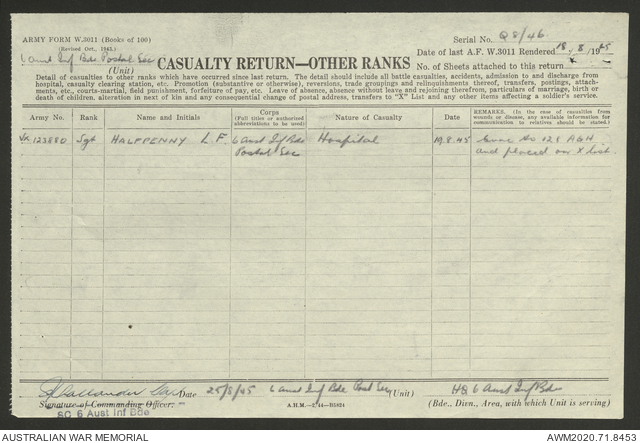 ARMY FORM W.3011 (Books of 100)
(Revised Oct., 1943.)
6 Aust Inf Bde Postal Sec
(Unit)
CASUALTY RETURN—OTHER RANKS
Serial No. Q8/46
Date of last A.F. W.3011 Rendered 18/8/1945
No. of Sheets attached to this return
Detail of casualties to other ranks which have occurred since last return. The detail should include all battle casualties, accidents, admission to and discharge from
hospital, casualty clearing station, etc. Promotion (substantive or otherwise), reversions, trade groupings and relinquishments thereof, transfers, postings, attach-
ments, etc., courts-martial, field punishment, forfeiture of pay, etc. Leave of absence, absence without leave and rejoining therefrom, particulars of marriage, birth or
death of children, alteration in next of kin and any consequential change of postal address, transfers to "X" List and any other items affecting a soldier's service.
Army No.
Rank
Name and Initials
Corps
(Full titles or authorized
abbreviations to be used)
Nature of Casualty
Date
REMARKS. (In the case of casualties from
wounds or disease, any available information for
communication to relatives should be stated.)
123880 Sgt HALFPENNY L.F. 6 Aust Inf Bde Hospital 19.8.45 Evac to 128 AGH
Postal Sec and placed on X list
Date 25/8/45 6 Aust Inf Bde Post Sec (Unit) HQ 6 Aust Inf Bde
Signature of Commanding Officer.
SC 6 Aust Inf Bde
A.H.M.—2/44—B5824
(Bde., Divn., Area, with which Unit is serving)
AUSTRALIAN WAR MEMORIAL
AWM2020.71.8453